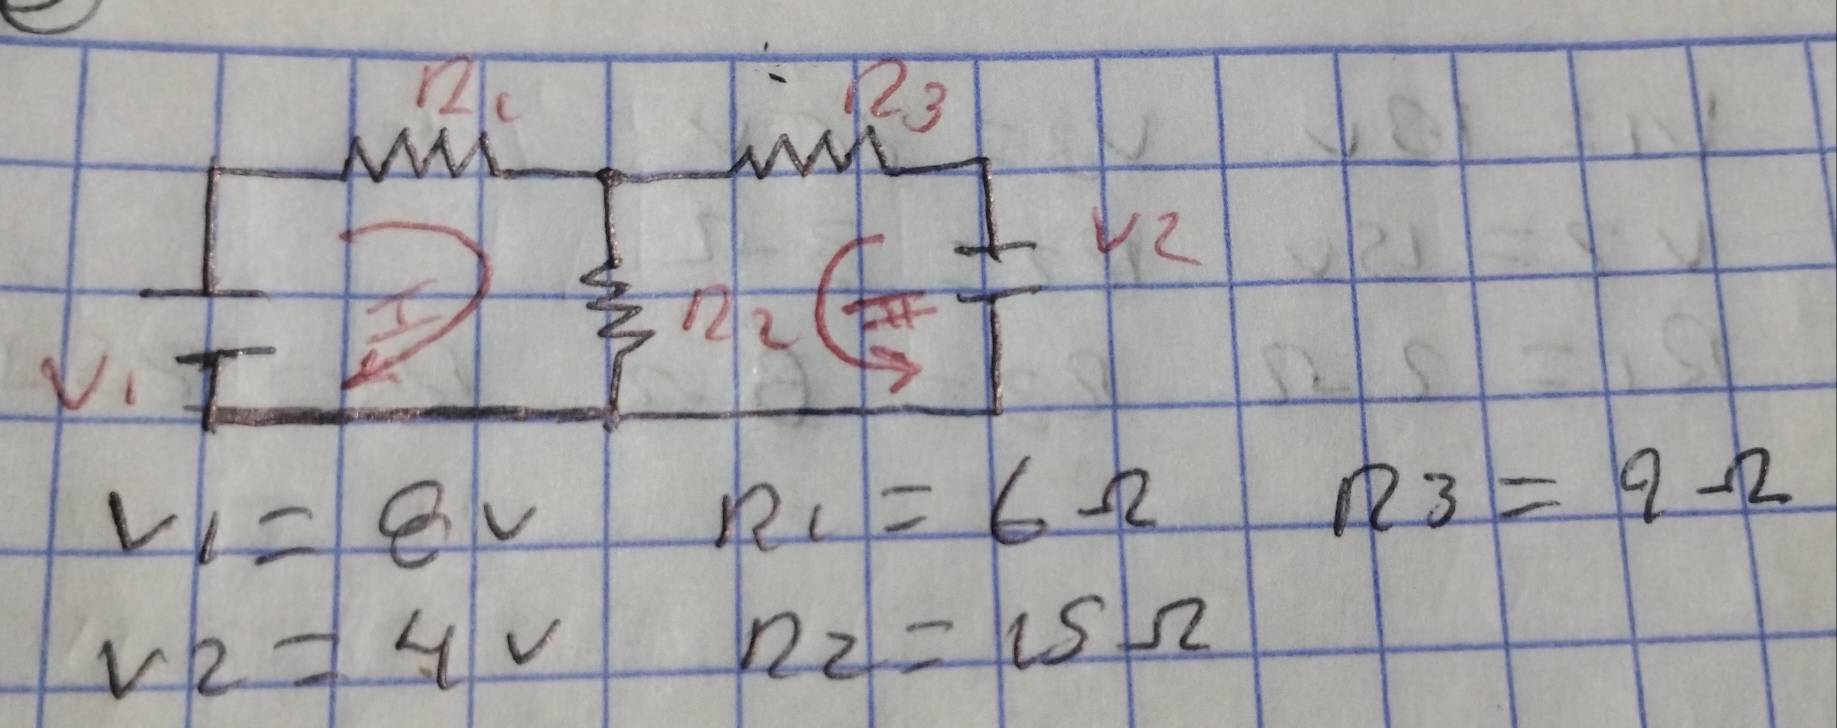 R1 R3
I R2 II V2
V1
V1 = 8 V R1 = 6 Ω R3 = 9 Ω
V2 = 4 V R2 = 15 Ω